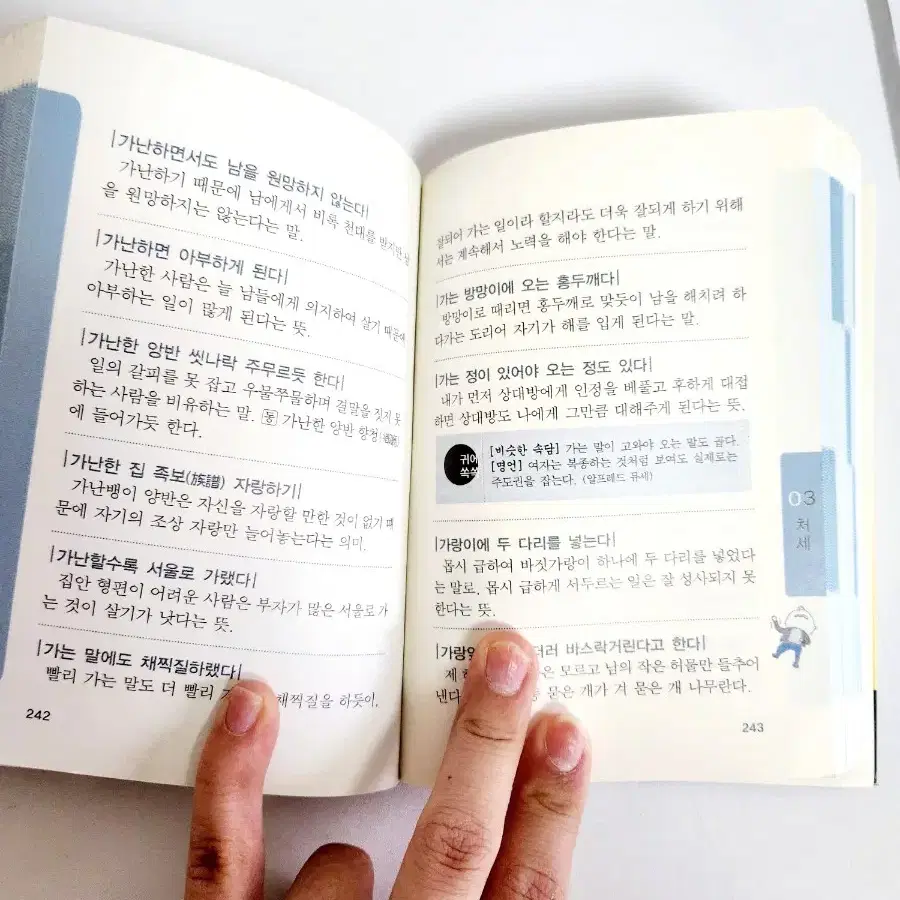 |가난하면서도 남을 원망하지 않는다|
가난하기 때문에 남에게서 비록 천대를 받지만 남
을 원망하지는 않는다는 말.
가난하면 아부하게 된다|
가난한 사람은 늘 남들에게 의지하여 살기 때문에
아부하는 일이 많게 된다는 뜻.
|가난한 양반 씻나락 주무르듯 한다|
일의 갈피를 못 잡고 우물쭈물하며 결말을 짓지 못
하는 사람을 비유하는 말. 동 가난한 양반 향청
에 들어가듯 한다.
|가난한 집 족보(族譜) 자랑하기|
가난뱅이 양반은 자신을 자랑할 만한 것이 없기 때
문에 자기의 조상 자랑만 늘어놓는다는 의미.
|가난할수록 서울로 가랬다|
집안 형편이 어려운 사람은 부자가 많은 서울로 가
는 것이 살기가 낫다는 뜻.
|가는 말에도 채찍질하랬다|
빨리 가는 말도 더 빨리 채찍질을 하듯이,
242
잘되어 가는 일이라 할지라도 더욱 잘되게 하기 위해
서는 계속해서 노력을 해야 한다는 말.
|가는 방망이에 오는 홍두깨다|
방망이로 때리면 홍두깨로 맞듯이 남을 해치려 하
다가는 도리어 자기가 해를 입게 된다는 말.
|가는 정이 있어야 오는 정도 있다|
내가 먼저 상대방에게 인정을 베풀고 후하게 대접
하면 상대방도 나에게 그만큼 대해주게 된다는 뜻.
귀에
쏙쏙
[비슷한 속담] 가는 말이 고와야 오는 말도 곱다.
[명언] 여자는 복종하는 것처럼 보여도 실제로는
주도권을 잡는다. (알프레드 뮤세)
|가랑이에 두 다리를 넣는다|
몹시 급하여 바짓가랑이 하나에 두 다리를 넣었다
는 말로, 몹시 급하게 서두르는 일은 잘 성사되지 못
한다는 뜻.
바스락거린다고 한다|
모르고 남의 작은 허물만 들추어
낸다 묻은 개가 겨 묻은 개 나무란다.
243
03
처
세